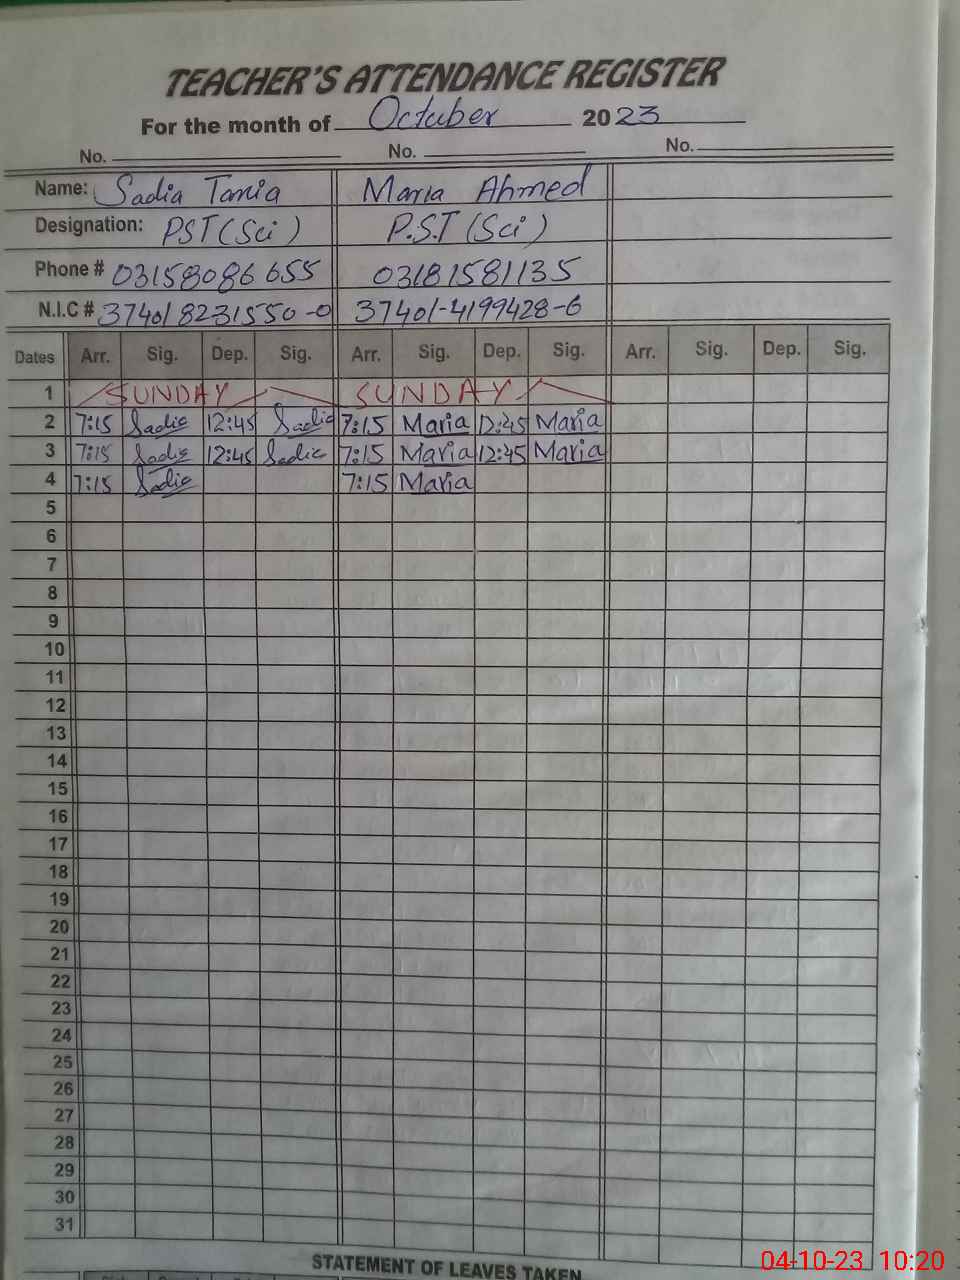 TEACHER'S ATTENDANCE REGISTER
For the month of October 2023
No. No. No.
Name: Sadia Tania Maria Ahmed
Designation: PST (Sci) P.S.T (Sci)
Phone # 03158086655 03181581135
N.I.C # 374018231550-0 37401-4199428-6
Dates Arr. Sig. Dep. Sig. Arr. Sig. Dep. Sig. Arr. Sig. Dep. Sig.
1 SUNDAY SUNDAY
2 7:15 Sadia 12:45 Sadia 7:15 Maria 12:45 Maria
3 7:15 Sadia 12:45 Sadia 7:15 Maria 12:45 Maria
4 7:15 Sadia 7:15 Maria
5
6
7
8
9
10
11
12
13
14
15
16
17
18
19
20
21
22
23
24
25
26
27
28
29
30
31
STATEMENT OF LEAVES TAKEN
04-10-23 10:20